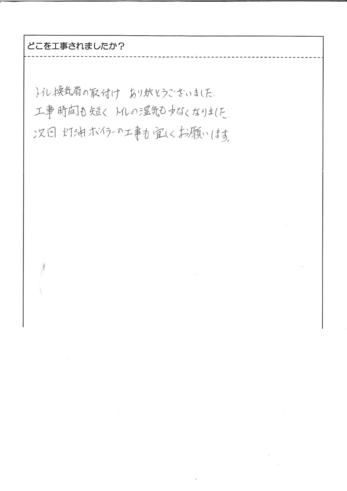 どこを工事されましたか？
トイレ換気扇の取付け ありがとうございました
工事時間も短く トイレの湿気も少なくなりました
次回 灯油ボイラーの工事も宜しくお願いします。